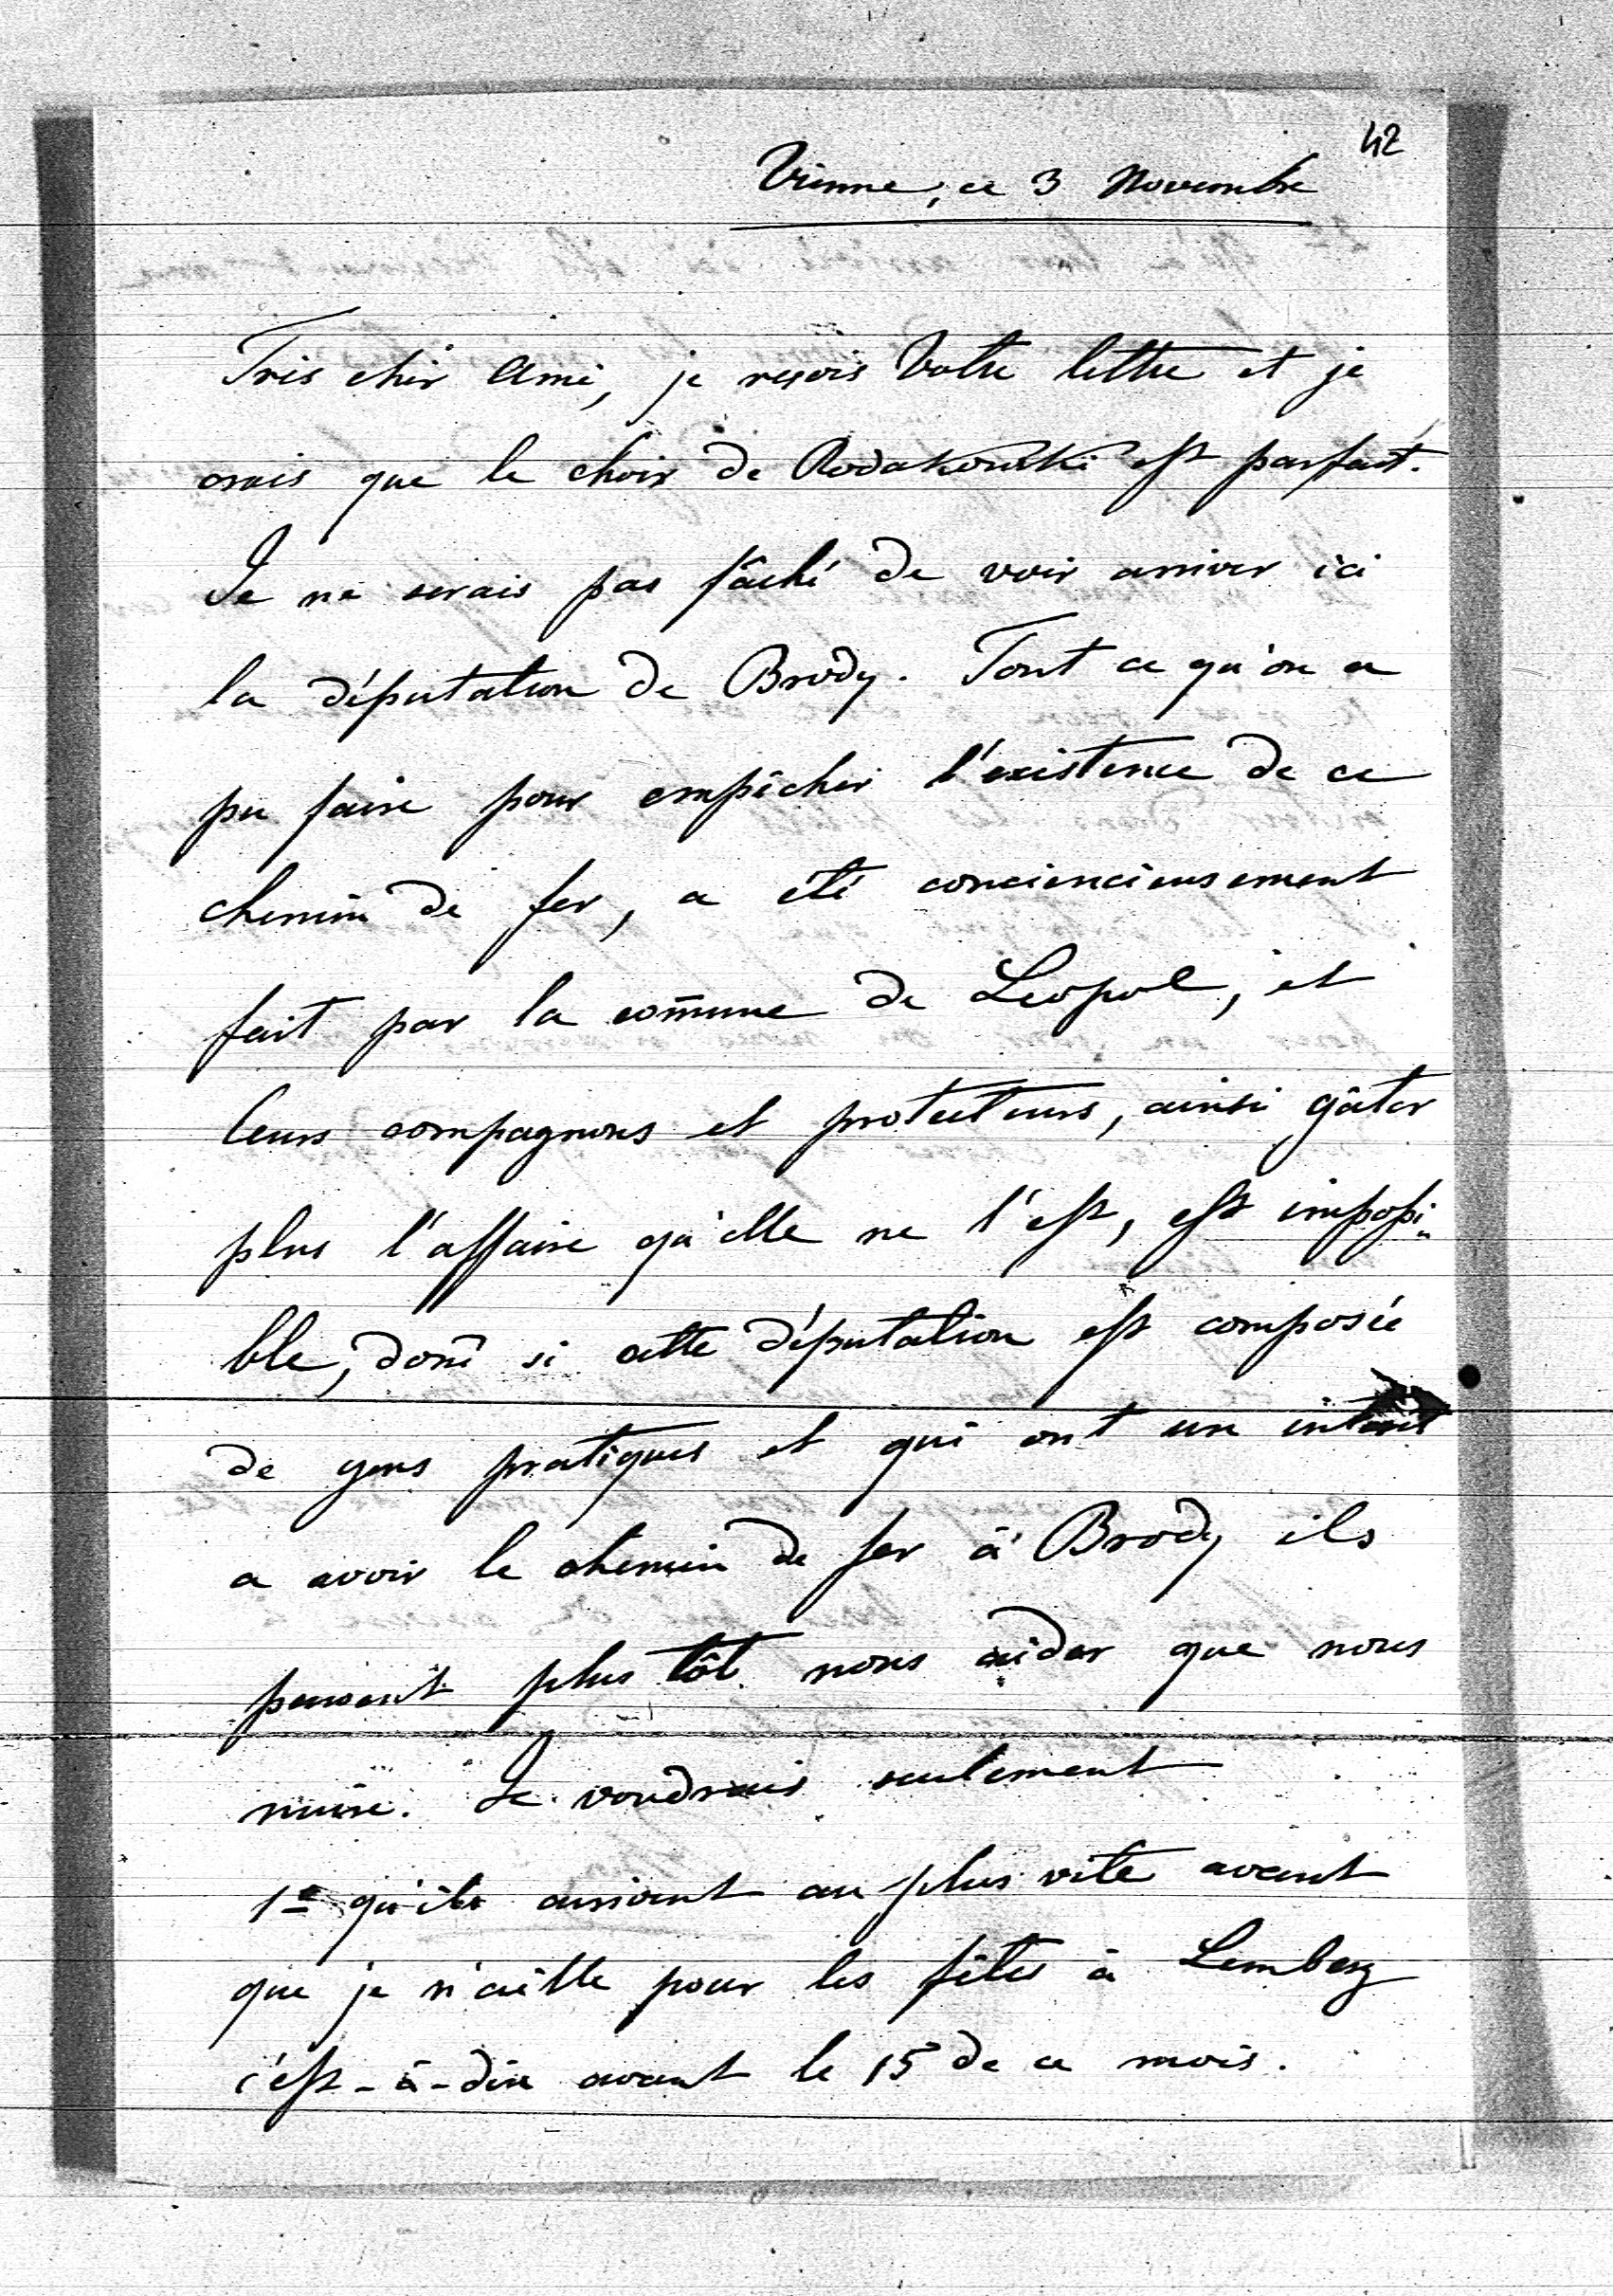 42
Vienne, ce 3 Novembre
Très cher Ami, je reçois Votre lettre et je
crois que le choix de Rodakowski est parfait.
Je ne serais pas fâché de voir arriver ici
la députation de Brody. Tout ce qu'on a
pu faire pour empêcher l'existence de ce
chemin de fer, a été conciencieusement
fait par la com̄une de Leopol, et
leurs compagnons et protecteurs, ainsi gâter
plus l'affaire qu'elle ne l'est, est impossi-
ble, donc si cette députation est composée
de gens pratiques et qui ont un intérêt
a avoir le chemin de fer à Brody ils
peuvent plus tôt nous aider que nous
nuire. Je voudrais seulement
1º qu'ils arrivent au plus vite avant
que je n'aille pour les fêtes à Lemberg
c'est-à-dire avant le 15 de ce mois.